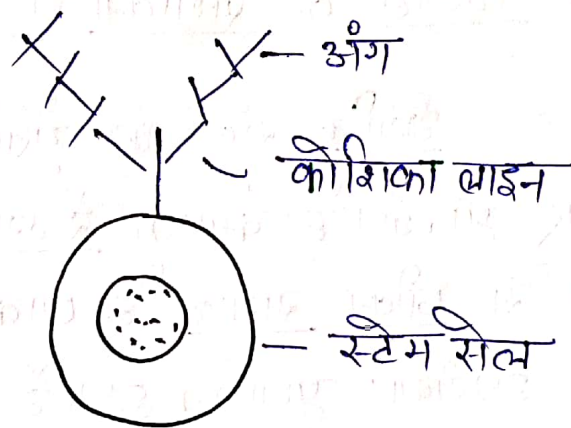 अंग
कोशिका लाइन
स्टेम सेल